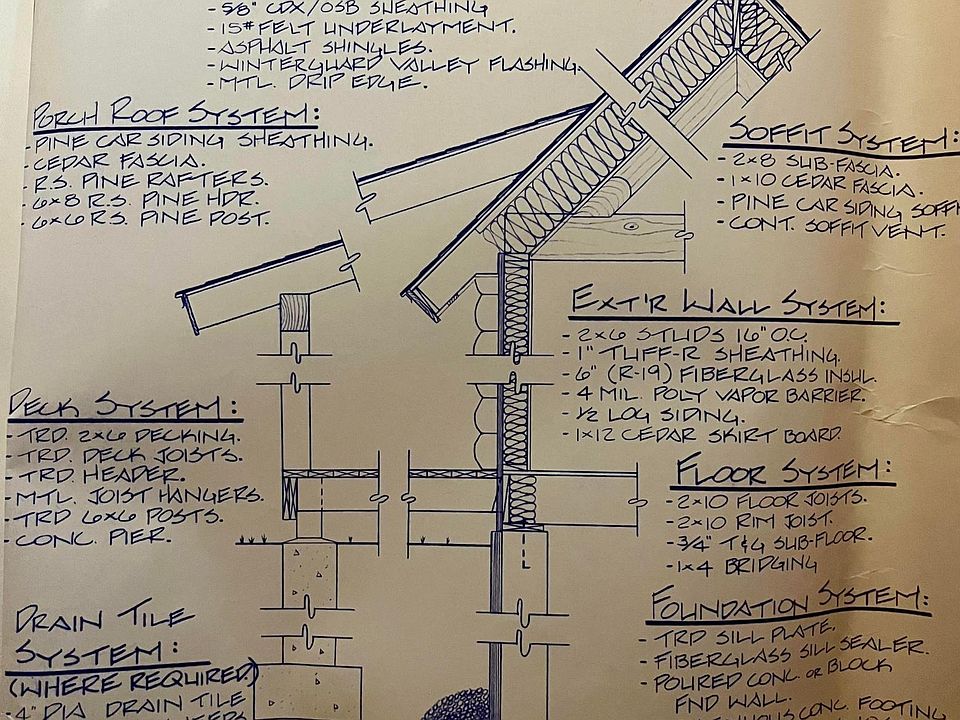 - 5/8" CDX/OSB SHEATHING
- 15# FELT UNDERLAYMENT.
- ASPHALT SHINGLES.
- WINTERGUARD VALLEY FLASHING.
- MTL. DRIP EDGE.
PORCH ROOF SYSTEM:
- PINE CAR SIDING SHEATHING.
- CEDAR FASCIA.
- R.S. PINE RAFTERS.
- 6x8 R.S. PINE HDR.
- 6x6 R.S. PINE POST.
SOFFIT SYSTEM:
- 2x8 SUB-FASCIA.
- 1x10 CEDAR FASCIA.
- PINE CAR SIDING SOFFI
- CONT. SOFFIT VENT.
EXT'R WALL SYSTEM:
- 2x6 STUDS 16" O.C.
- 1" TUFF-R SHEATHING.
- 6" (R-19) FIBERGLASS INSUL.
- 4 MIL. POLY VAPOR BARRIER.
- 1/2 LOG SIDING.
- 1x12 CEDAR SKIRT BOARD.
DECK SYSTEM:
- TRD. 2x6 DECKING.
- TRD. DECK JOISTS.
- TRD. HEADER.
- MTL. JOIST HANGERS.
- TRD 6x6 POSTS.
- CONC. PIER.
FLOOR SYSTEM:
- 2x10 FLOOR JOISTS.
- 2x10 RIM JOIST.
- 3/4" T&G SUB-FLOOR.
- 1x4 BRIDGING
DRAIN TILE
SYSTEM:
(WHERE REQUIRED)
- 4" DIA DRAIN TILE
FOUNDATION SYSTEM:
- TRD SILL PLATE.
- FIBERGLASS SILL SEALER.
- POURED CONC. OR BLOCK
FND WALL.
CONC. FOOTING